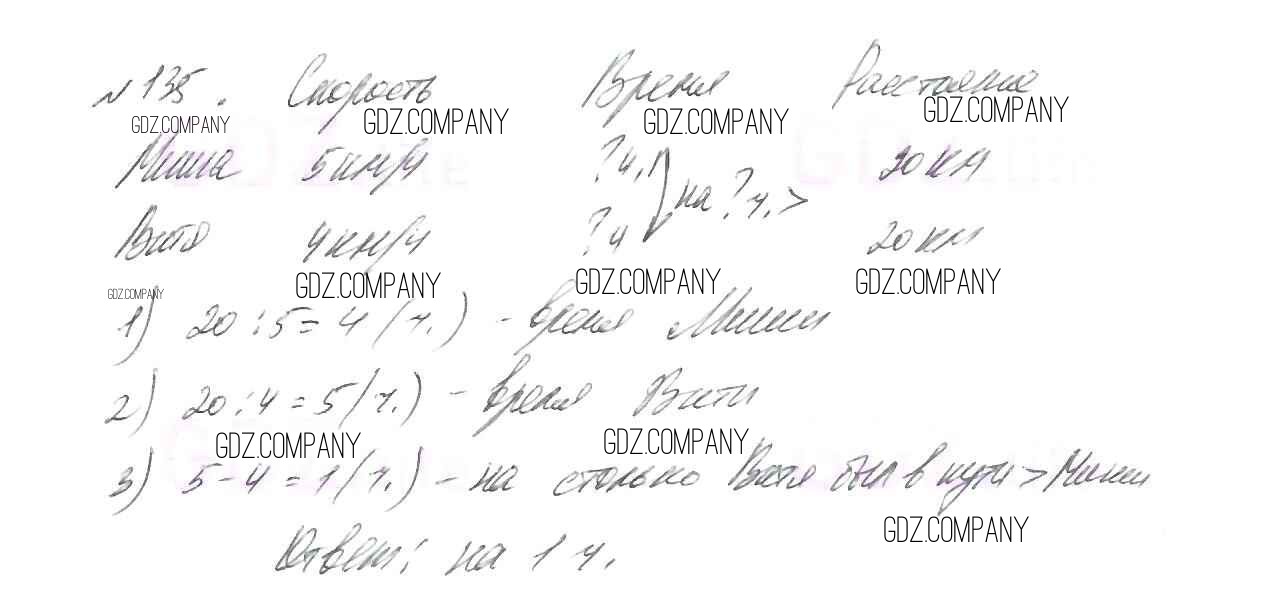 №135. Скорость Время Расстояние
GDZ.COMPANY GDZ.COMPANY GDZ.COMPANY GDZ.COMPANY
Миша 5км/ч ?ч. на ?ч. > 20км
Витя 4км/ч ?ч 20км
GDZ.COMPANY GDZ.COMPANY GDZ.COMPANY GDZ.COMPANY
1) 20:5=4(ч.) - время Миши
2) 20:4=5(ч.) - время Вити
GDZ.COMPANY GDZ.COMPANY
3) 5-4=1(ч.) - на столько Витя был в пути > Миши
GDZ.COMPANY
Ответ: на 1 ч.